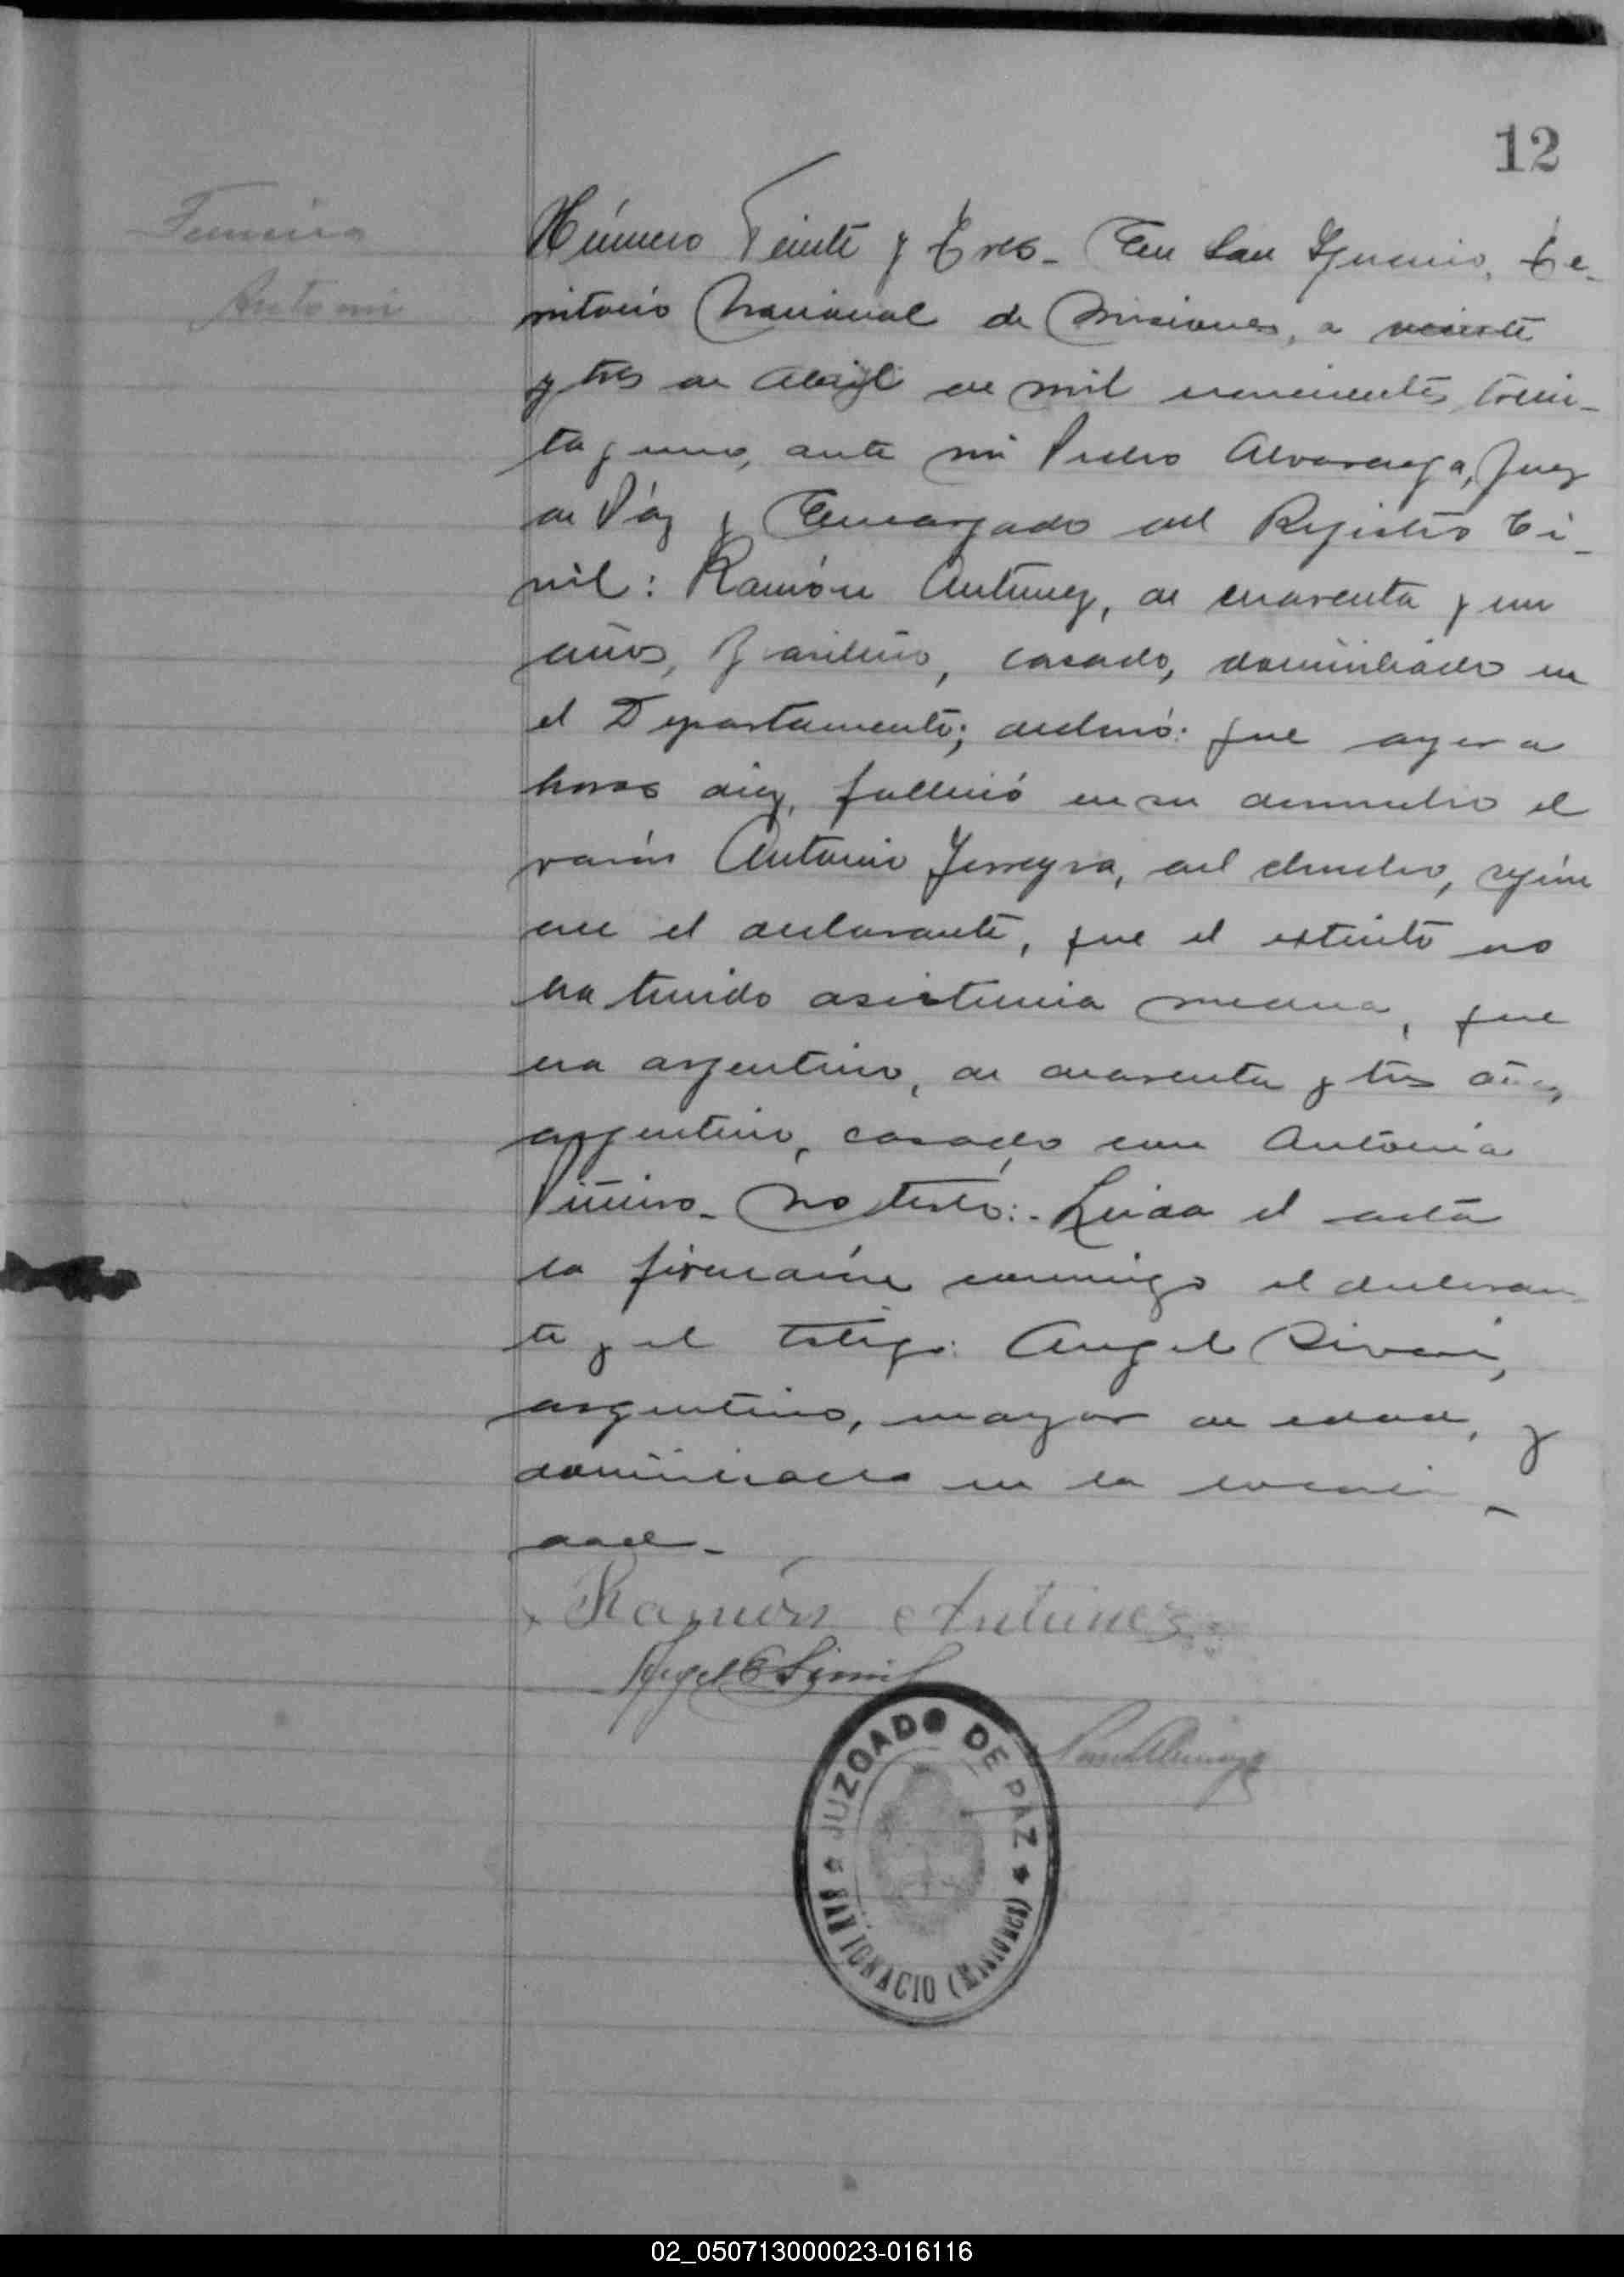 12
Ferreira
Antonio
Número Veinte y Tres_ En San Ignacio, Te_
rritorio Nacional de Misiones, a veinte
y tres de Abril de mil novecientos trein_
ta y uno, ante mi Pedro Alvarenga, Juez
de Páz y Encargado del Registro Ci_
vil: Ramón Antunez, de cuarenta y un
años, Brasilero, casado, domiciliado en
el Departamento; declaró: que ayer a
horas diez, falleció en su domicilio el
varón Antonio Ferreyra, del chucho, según
cree el declarante, que el extinto no
ha tenido asistencia medica, que
era argentino, de cuarenta y tres años,
argentino, casado con Antonia
Piñeiro_ No testó:- Leida el acta
la firmaron conmigo el declaran
te y el testigo: Angel
argentino, mayor de edad, y
domiciliado en la locali_
dad_
Ramón Antunes
Angel
JUZGADO DE PAZ
SAN IGNACIO (MISIONES)
02_050713000023-016116